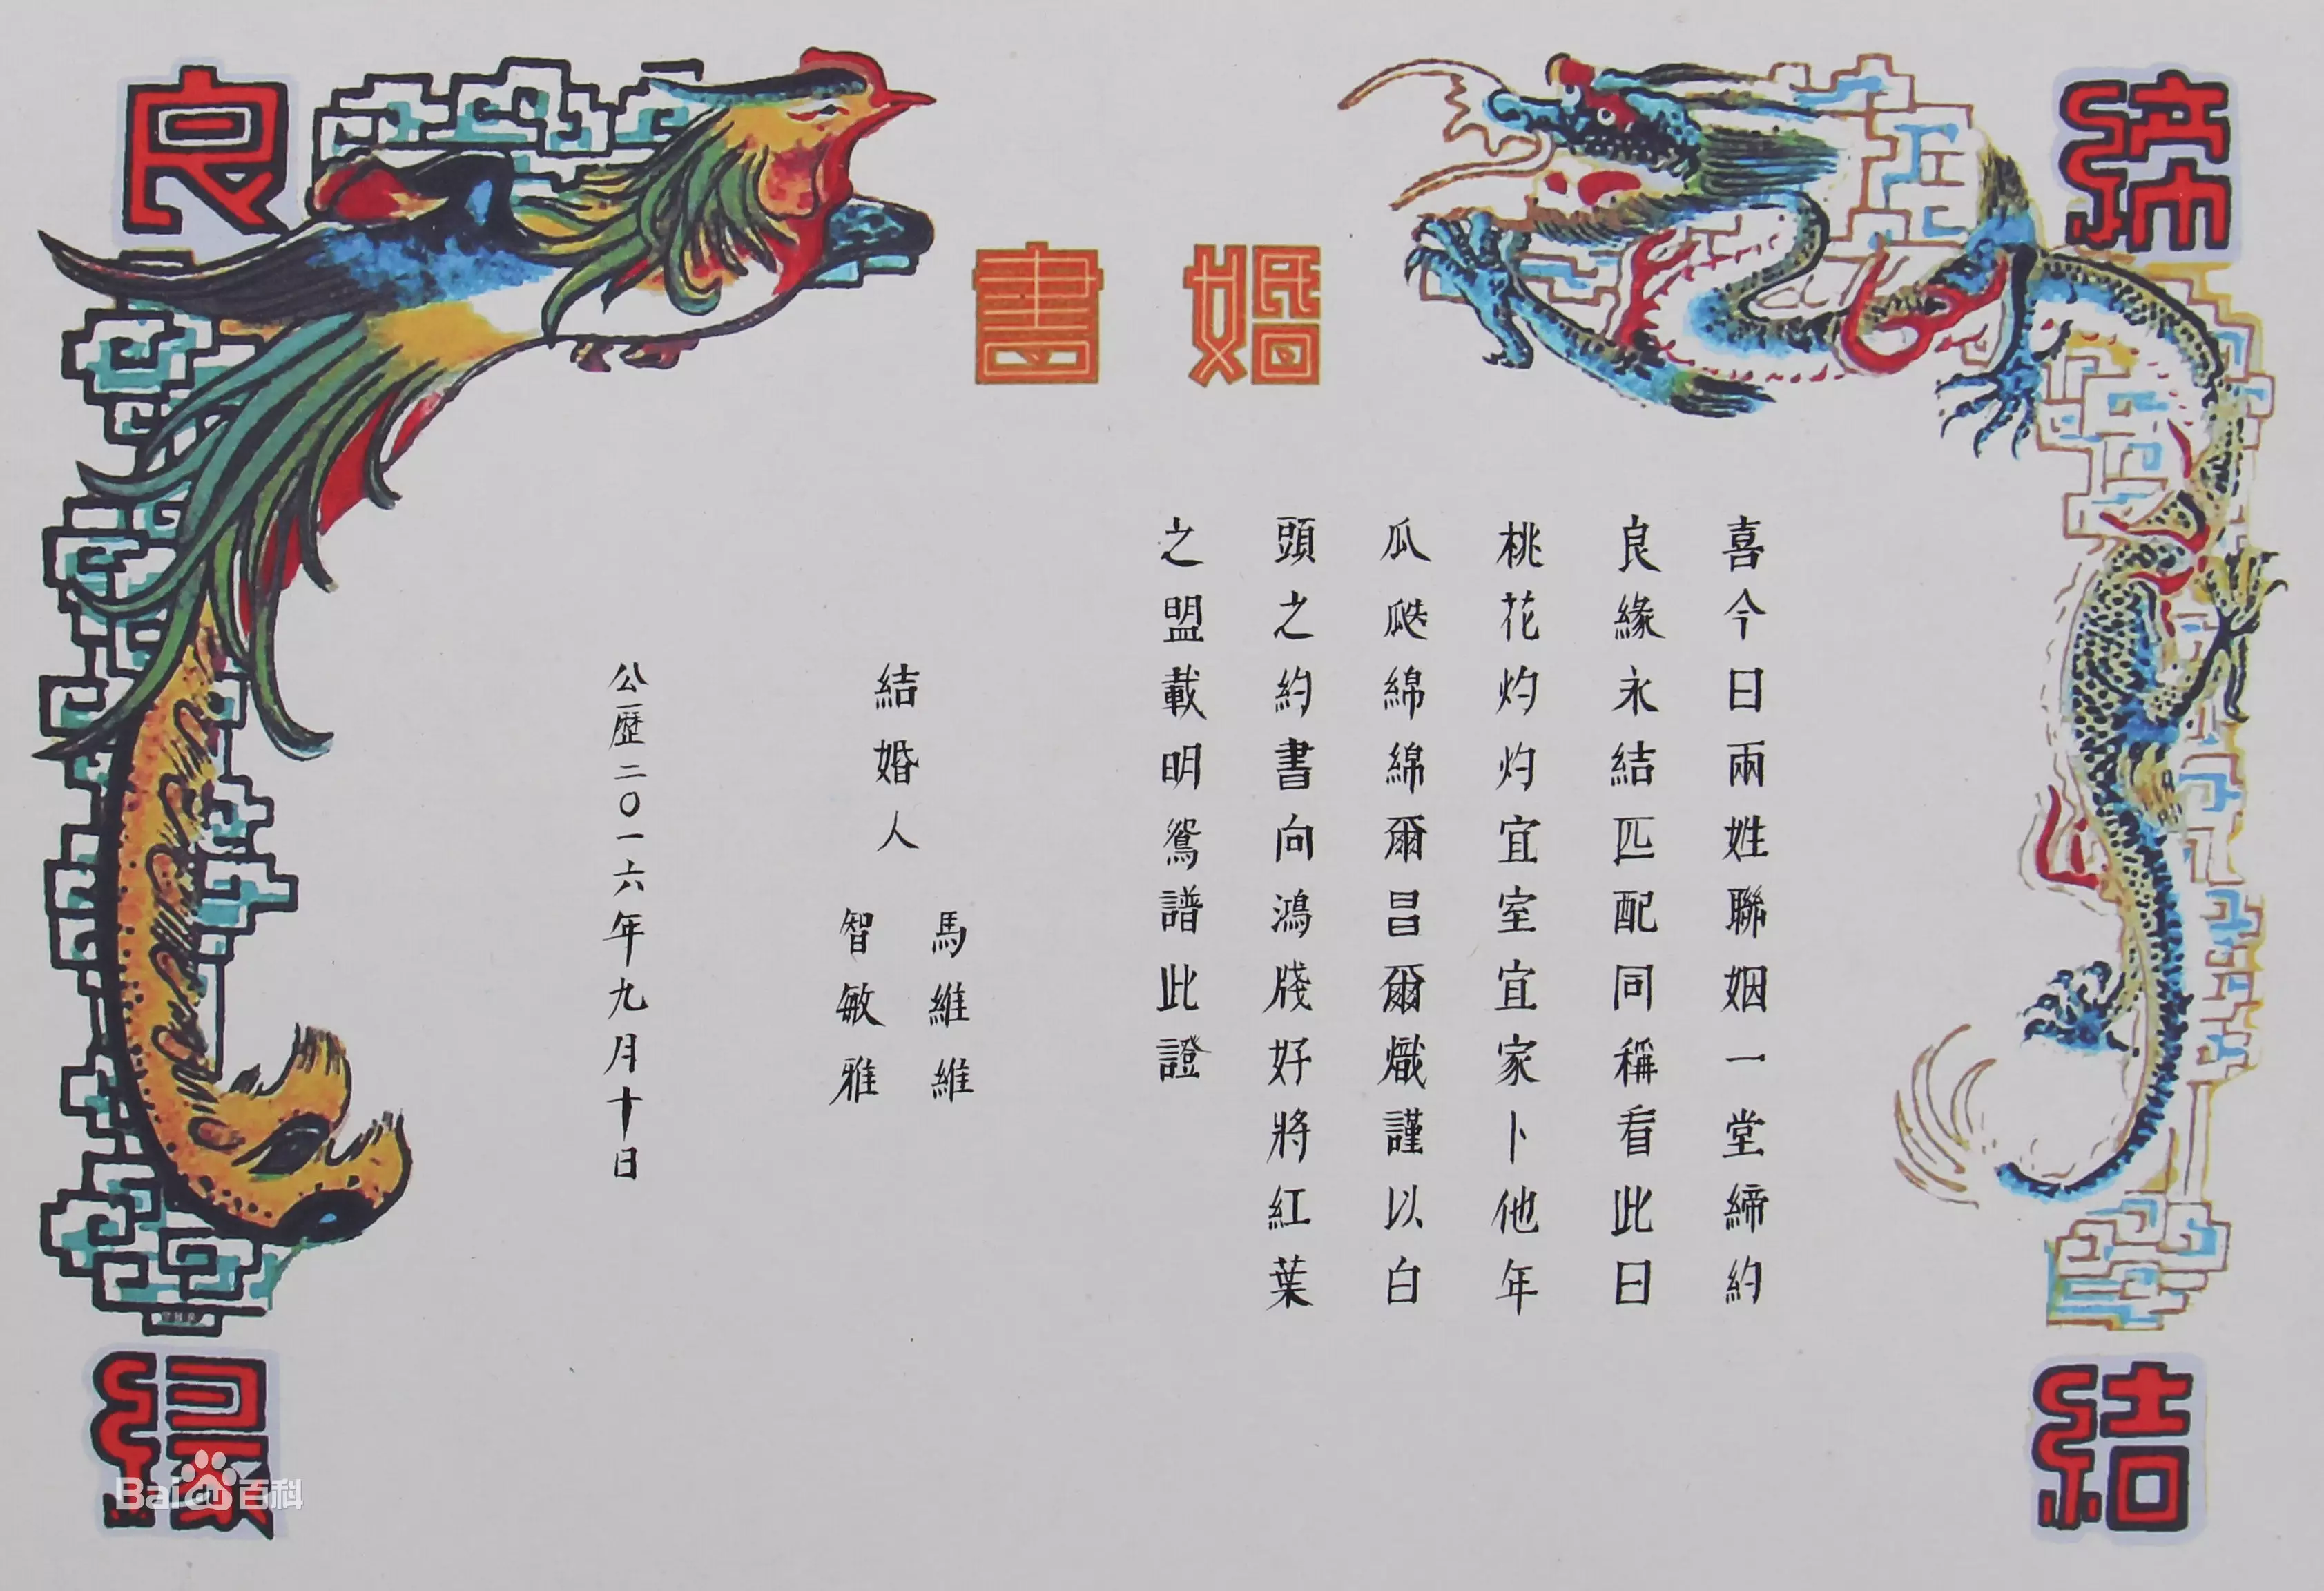 締結
良緣
婚書
喜今日兩姓聯姻一堂締約
良緣永結匹配同稱看此日
桃花灼灼宜室宜家卜他年
瓜瓞綿綿爾昌爾熾謹以白
頭之約書向鴻牋好將紅葉
之盟載明鴛譜此證
結婚人
馬維維
智敏雅
公歷二〇一六年九月十日
Bai百科